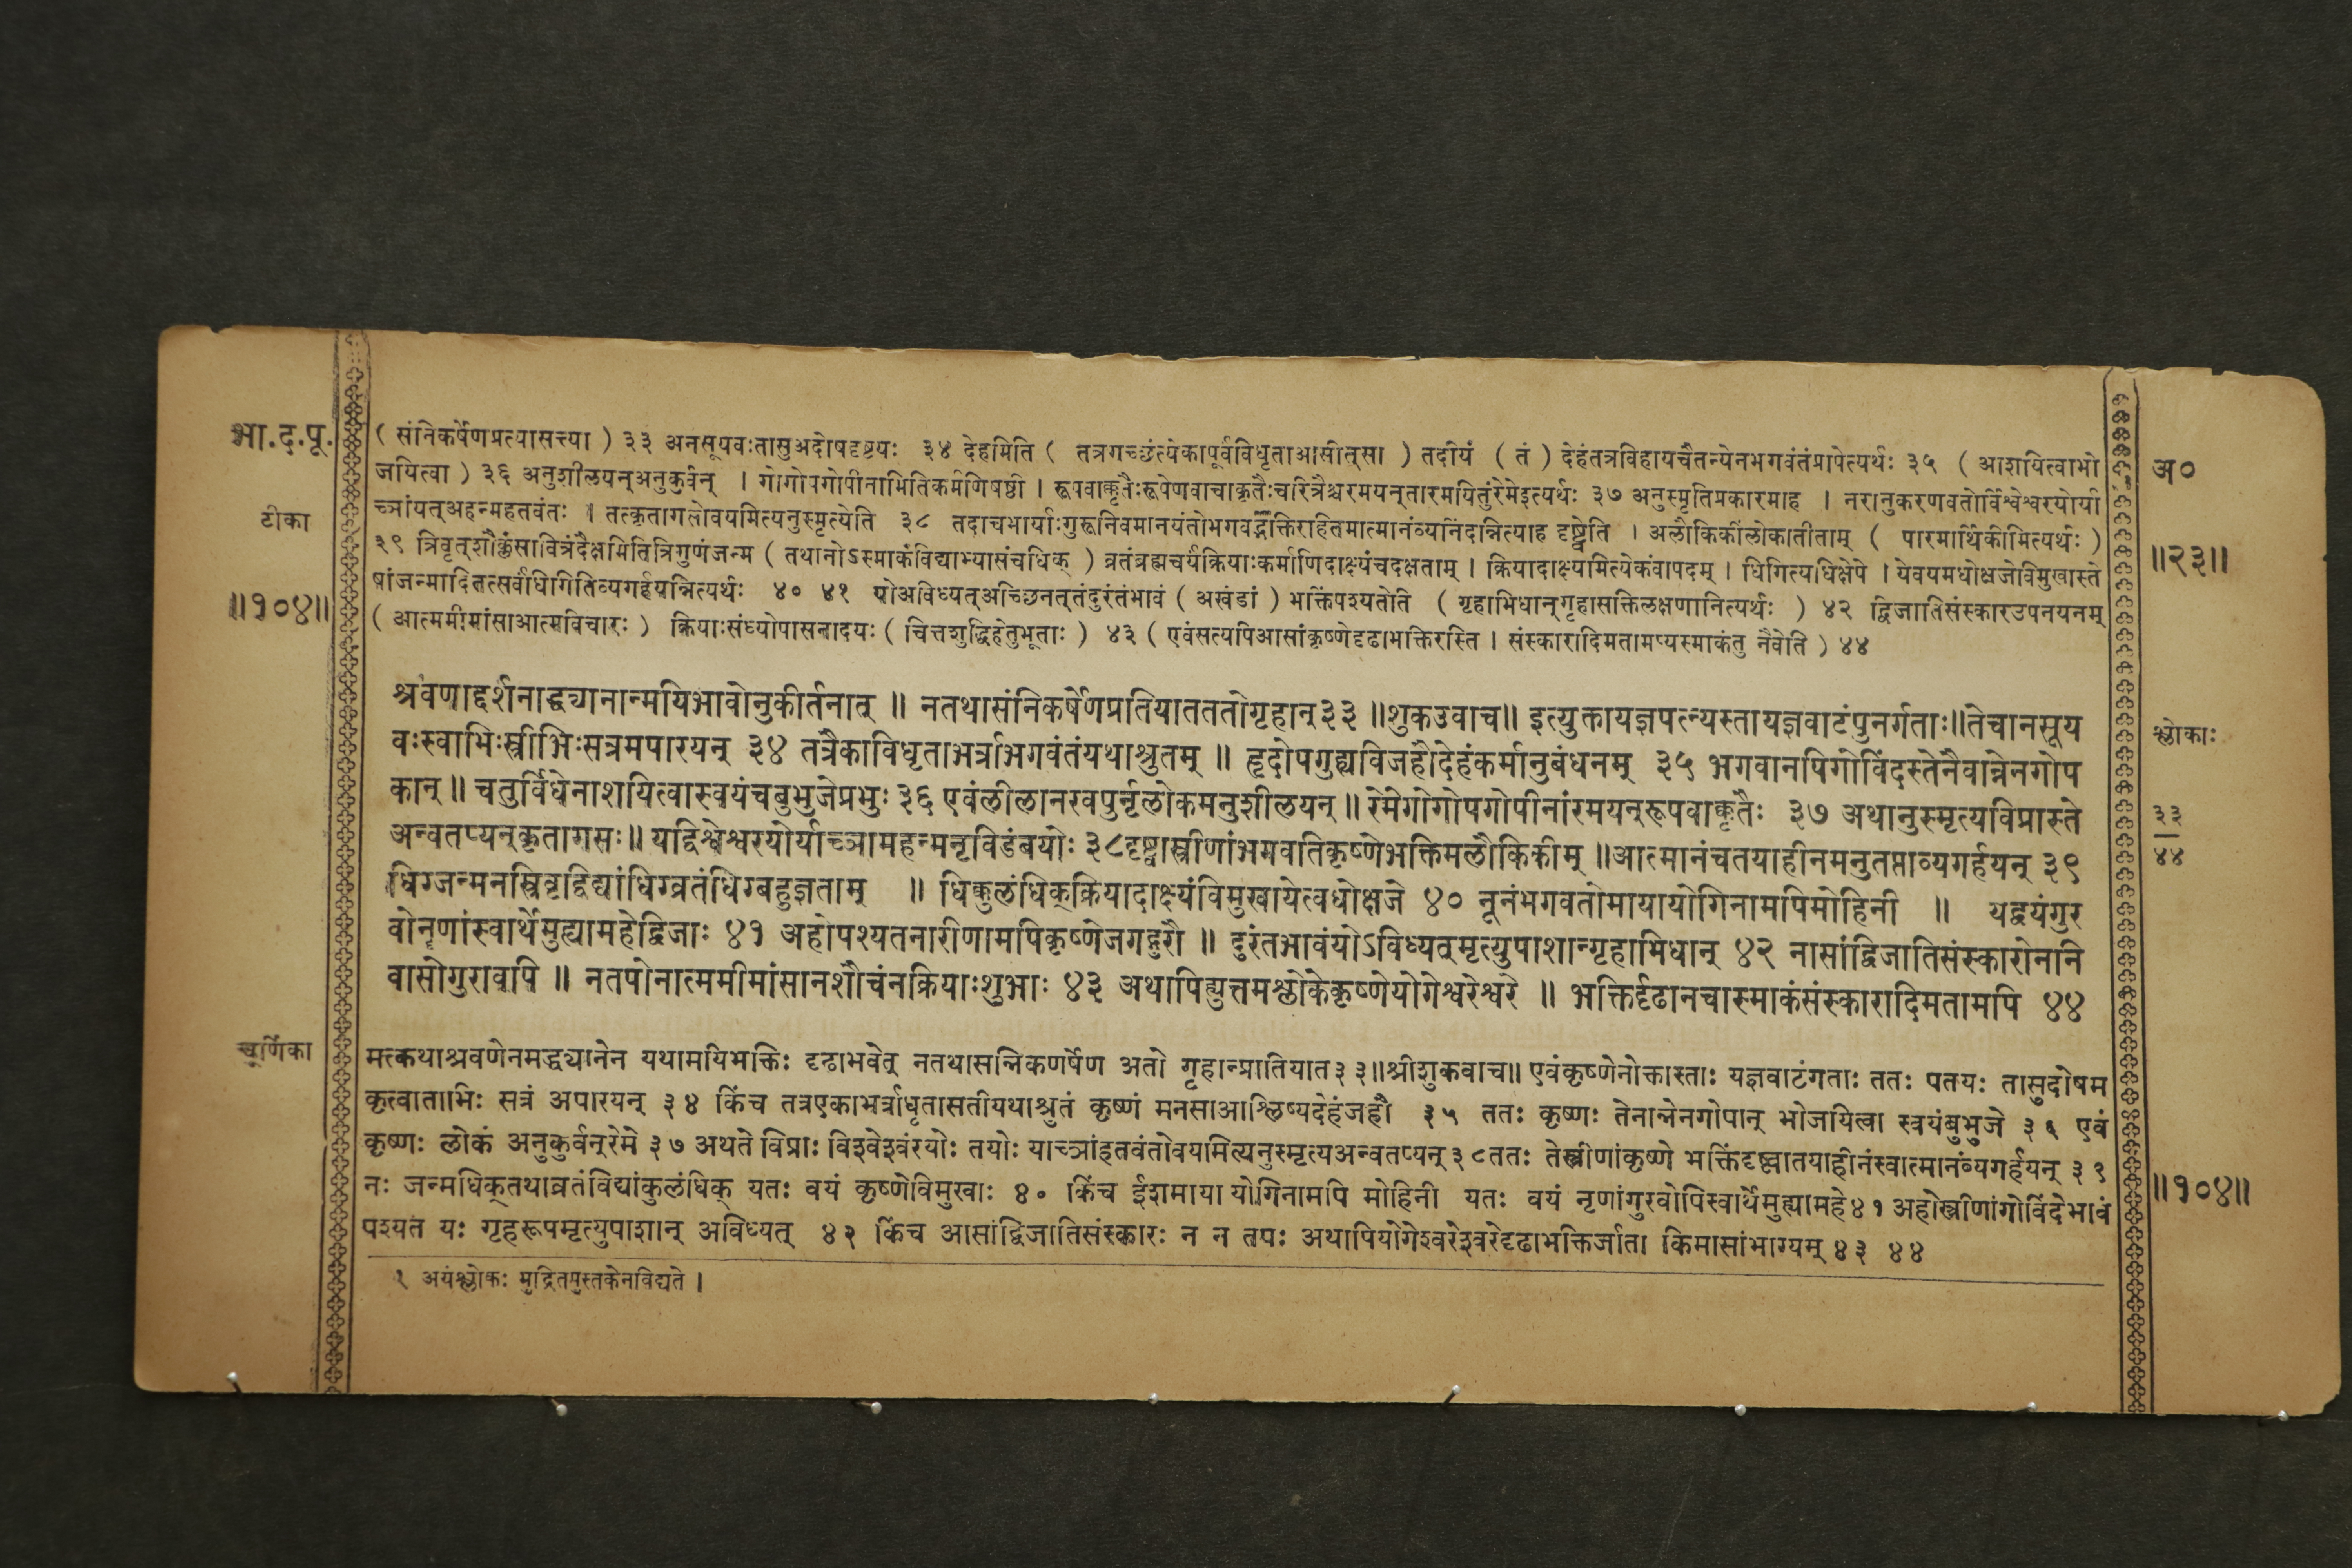 भा.द.पू.
टीका
॥१०४॥
( संनिकर्षेणप्रत्यासत्त्या ) ३३ अनसूयवःतासुअदोषदृष्टयः ३४ देहमिति ( तत्रगच्छंत्येकापूर्वविधृताआसीत्सा ) तदीयं (तं) देहंतत्रविहायचैतन्येनभगवंतंप्रापेत्यर्थः ३५ (आशयित्वाभो
जयित्वा ) ३६ अनुशीलयन्अनुकुर्वन् । गोगोपगोपीनामितिकर्मणिषष्ठी । रूपवाक्कृतैःरूपेणवाचाकृतैःचरित्रैश्चरमयन्तारमयितुंरेमेइत्यर्थः ३७ अनुस्मृतिप्रकारमाह । नरानुकरणवतोर्विश्वेश्वरयोर्या
च्ञांयत्अहन्महतवंतः । तत्कृतागसोवयमित्यनुस्मृत्येति ३८ तदाचभार्याःगुरूनिवमानयंतोभगवद्भक्तिरहितमात्मानंव्यनिंदन्नित्याह दृष्ट्वेति । अलौकिकींलोकातीताम् ( पारमार्थिकीमित्यर्थः )
३९ त्रिवृत्शौक्लंसावित्रंदैक्षमितित्रिगुणंजन्म ( तथानोऽस्माकंविद्याभ्यासंचधिक् ) व्रतंब्रह्मचर्यंक्रियाःकर्माणिदाक्ष्यंचदक्षताम् । क्रियादाक्ष्यमित्येकंवापदम् । धिगित्यधिक्षेपे । येवयमधोक्षजेविमुखास्ते
षांजन्मादितत्सर्वंधिगितिव्यगर्हयन्नित्यर्थः ४० ४१ योअविध्यत्अच्छिनत्तंदुरंतंभावं ( अखंडां ) भक्तिंपश्यतेति ( गृहाभिधान्गृहासक्तिलक्षणानित्यर्थः ) ४२ द्विजातिसंस्कारउपनयनम्
( आत्ममीमांसाआत्मविचारः ) क्रियाःसंध्योपासनादयः ( चित्तशुद्धिहेतुभूताः ) ४३ ( एवंसत्यपिआसांकृष्णेदृढाभक्तिरस्ति । संस्कारादिमतामप्यस्माकंतु नैवेति ) ४४
अ०
॥२३॥
श्रवणाद्दर्शनाद्ध्यानान्मयिभावोनुकीर्तनात् ॥ नतथासंनिकर्षेणप्रतियातततोगृहान्३३ ॥शुकउवाच॥ इत्युक्तायज्ञपत्न्यस्तायज्ञवाटंपुनर्गताः॥तेचानसूय
वःस्वाभिःस्त्रीभिःसत्रमपारयन् ३४ तत्रैकाविधृताभर्त्राभगवंतंयथाश्रुतम् ॥ हृदोपगुह्यविजहौदेहंकर्मानुबंधनम् ३५ भगवानपिगोविंदस्तेनैवान्नेनगोप
कान् ॥ चतुर्विधेनाशयित्वास्वयंचबुभुजेप्रभुः ३६ एवंलीलानरवपुर्नृलोकमनुशीलयन् ॥ रेमेगोगोपगोपीनांरमयन्रूपवाक्कृतैः ३७ अथानुस्मृत्यविप्रास्ते
अन्वतप्यन्कृतागसः॥ यद्विश्वेश्वरयोर्याच्ञामहन्मनृविडंबयोः ३८दृष्ट्वास्त्रीणांभगवतिकृष्णेभक्तिमलौकिकीम् ॥आत्मानंचतयाहीनमनुतप्ताव्यगर्हयन् ३९
धिग्जन्मनस्त्रिवृद्विद्यांधिग्व्रतंधिग्बहुज्ञताम् ॥ धिक्कुलंधिक्क्रियादाक्ष्यंविमुखायेत्वधोक्षजे ४० नूनंभगवतोमायायोगिनामपिमोहिनी ॥ यद्वयंगुर
वोनृणांस्वार्थेमुह्यामहेद्विजाः ४१ अहोपश्यतनारीणामपिकृष्णेजगद्गुरौ ॥ दुरंतभावंयोऽविध्यन्मृत्युपाशान्गृहाभिधान् ४२ नासांद्विजातिसंस्कारोननि
वासोगुरावपि ॥ नतपोनात्ममीमांसानशौचंनक्रियाःशुभाः ४३ अथापिह्युत्तमश्लोकेकृष्णेयोगेश्वरेश्वरे ॥ भक्तिर्दृढानचास्माकंसंस्कारादिमतामपि ४४
श्लोकाः
३३
४४
चूर्णिका
मत्कथाश्रवणेनमद्ध्यानेन यथामयिभक्तिः दृढाभवेत् नतथासन्निकर्णर्षेण अतो गृहान्प्रातियात३३॥श्रीशुकवाच॥ एवंकृष्णेनोक्तास्ताः यज्ञवाटंगताः ततः पतयः तासुदोषम
कृत्वाताभिः सत्रं अपारयन् ३४ किंच तत्रएकाभर्त्राधृतासतीयथाश्रुतं कृष्णं मनसाआश्लिष्यदेहंजहौ ३५ ततः कृष्णः तेनान्नेनगोपान् भोजयित्वा स्वयंबुभुजे ३६ एवं
कृष्णः लोकं अनुकुर्वन्रेमे ३७ अथते विप्राः विश्वेश्वंरयोः तयोः याच्ञांहतवंतोवयमित्यनुस्मृत्यअन्वतप्यन्३८ततः तेस्त्रीणांकृष्णे भक्तिंदृष्ट्वातयाहीनंस्वात्मानंव्यगर्हयन् ३९
नः जन्मधिक्तथाव्रतंविद्यांकुलंधिक् यतः वयं कृष्णेविमुखाः ४० किंच ईशमाया योगिनामपि मोहिनी यतः वयं नृणांगुरवोपिस्वार्थेमुह्यामहे४१ अहोस्त्रीणांगोविंदेभावं
पश्यत यः गृहरूपमृत्युपाशान् अविध्यत् ४२ किंच आसांद्विजातिसंस्कारः न न तपः अथापियोगेश्वरेश्वरेदृढाभक्तिर्जाता किमासांभाग्यम् ४३ ४४
॥१०४॥
१ अयंश्लोकः मुद्रितपुस्तकेनविद्यते ।